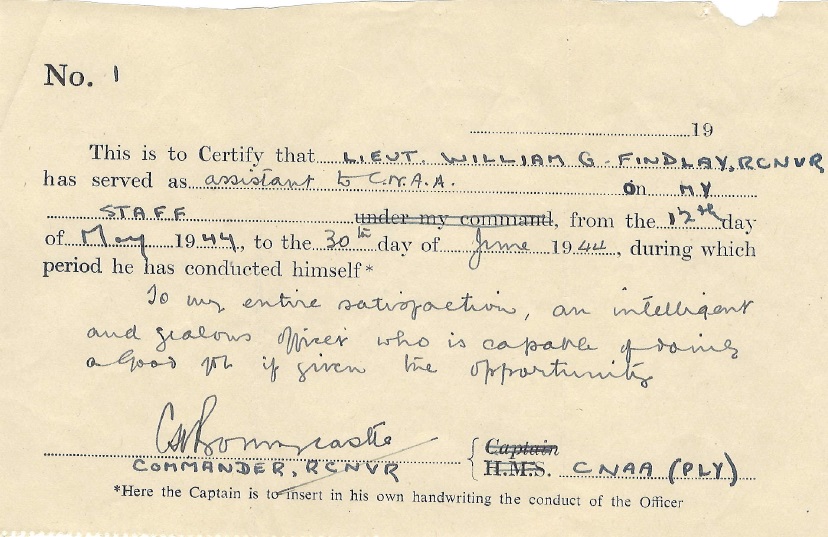 No. 1
19
This is to Certify that LIEUT. WILLIAM G. FINDLAY, RCNVR
has served as assistant to C.N.A.A. on MY
STAFF under my command, from the 12th day
of May 1944, to the 30th day of June 1944, during which
period he has conducted himself*
To my entire satisfaction, an intelligent
and zealous officer who is capable of doing
a good job if given the opportunity
CW Bonnycastle
COMMANDER, RCNVR
Captain
H.M.S. CNAA (PLY)
*Here the Captain is to insert in his own handwriting the conduct of the Officer